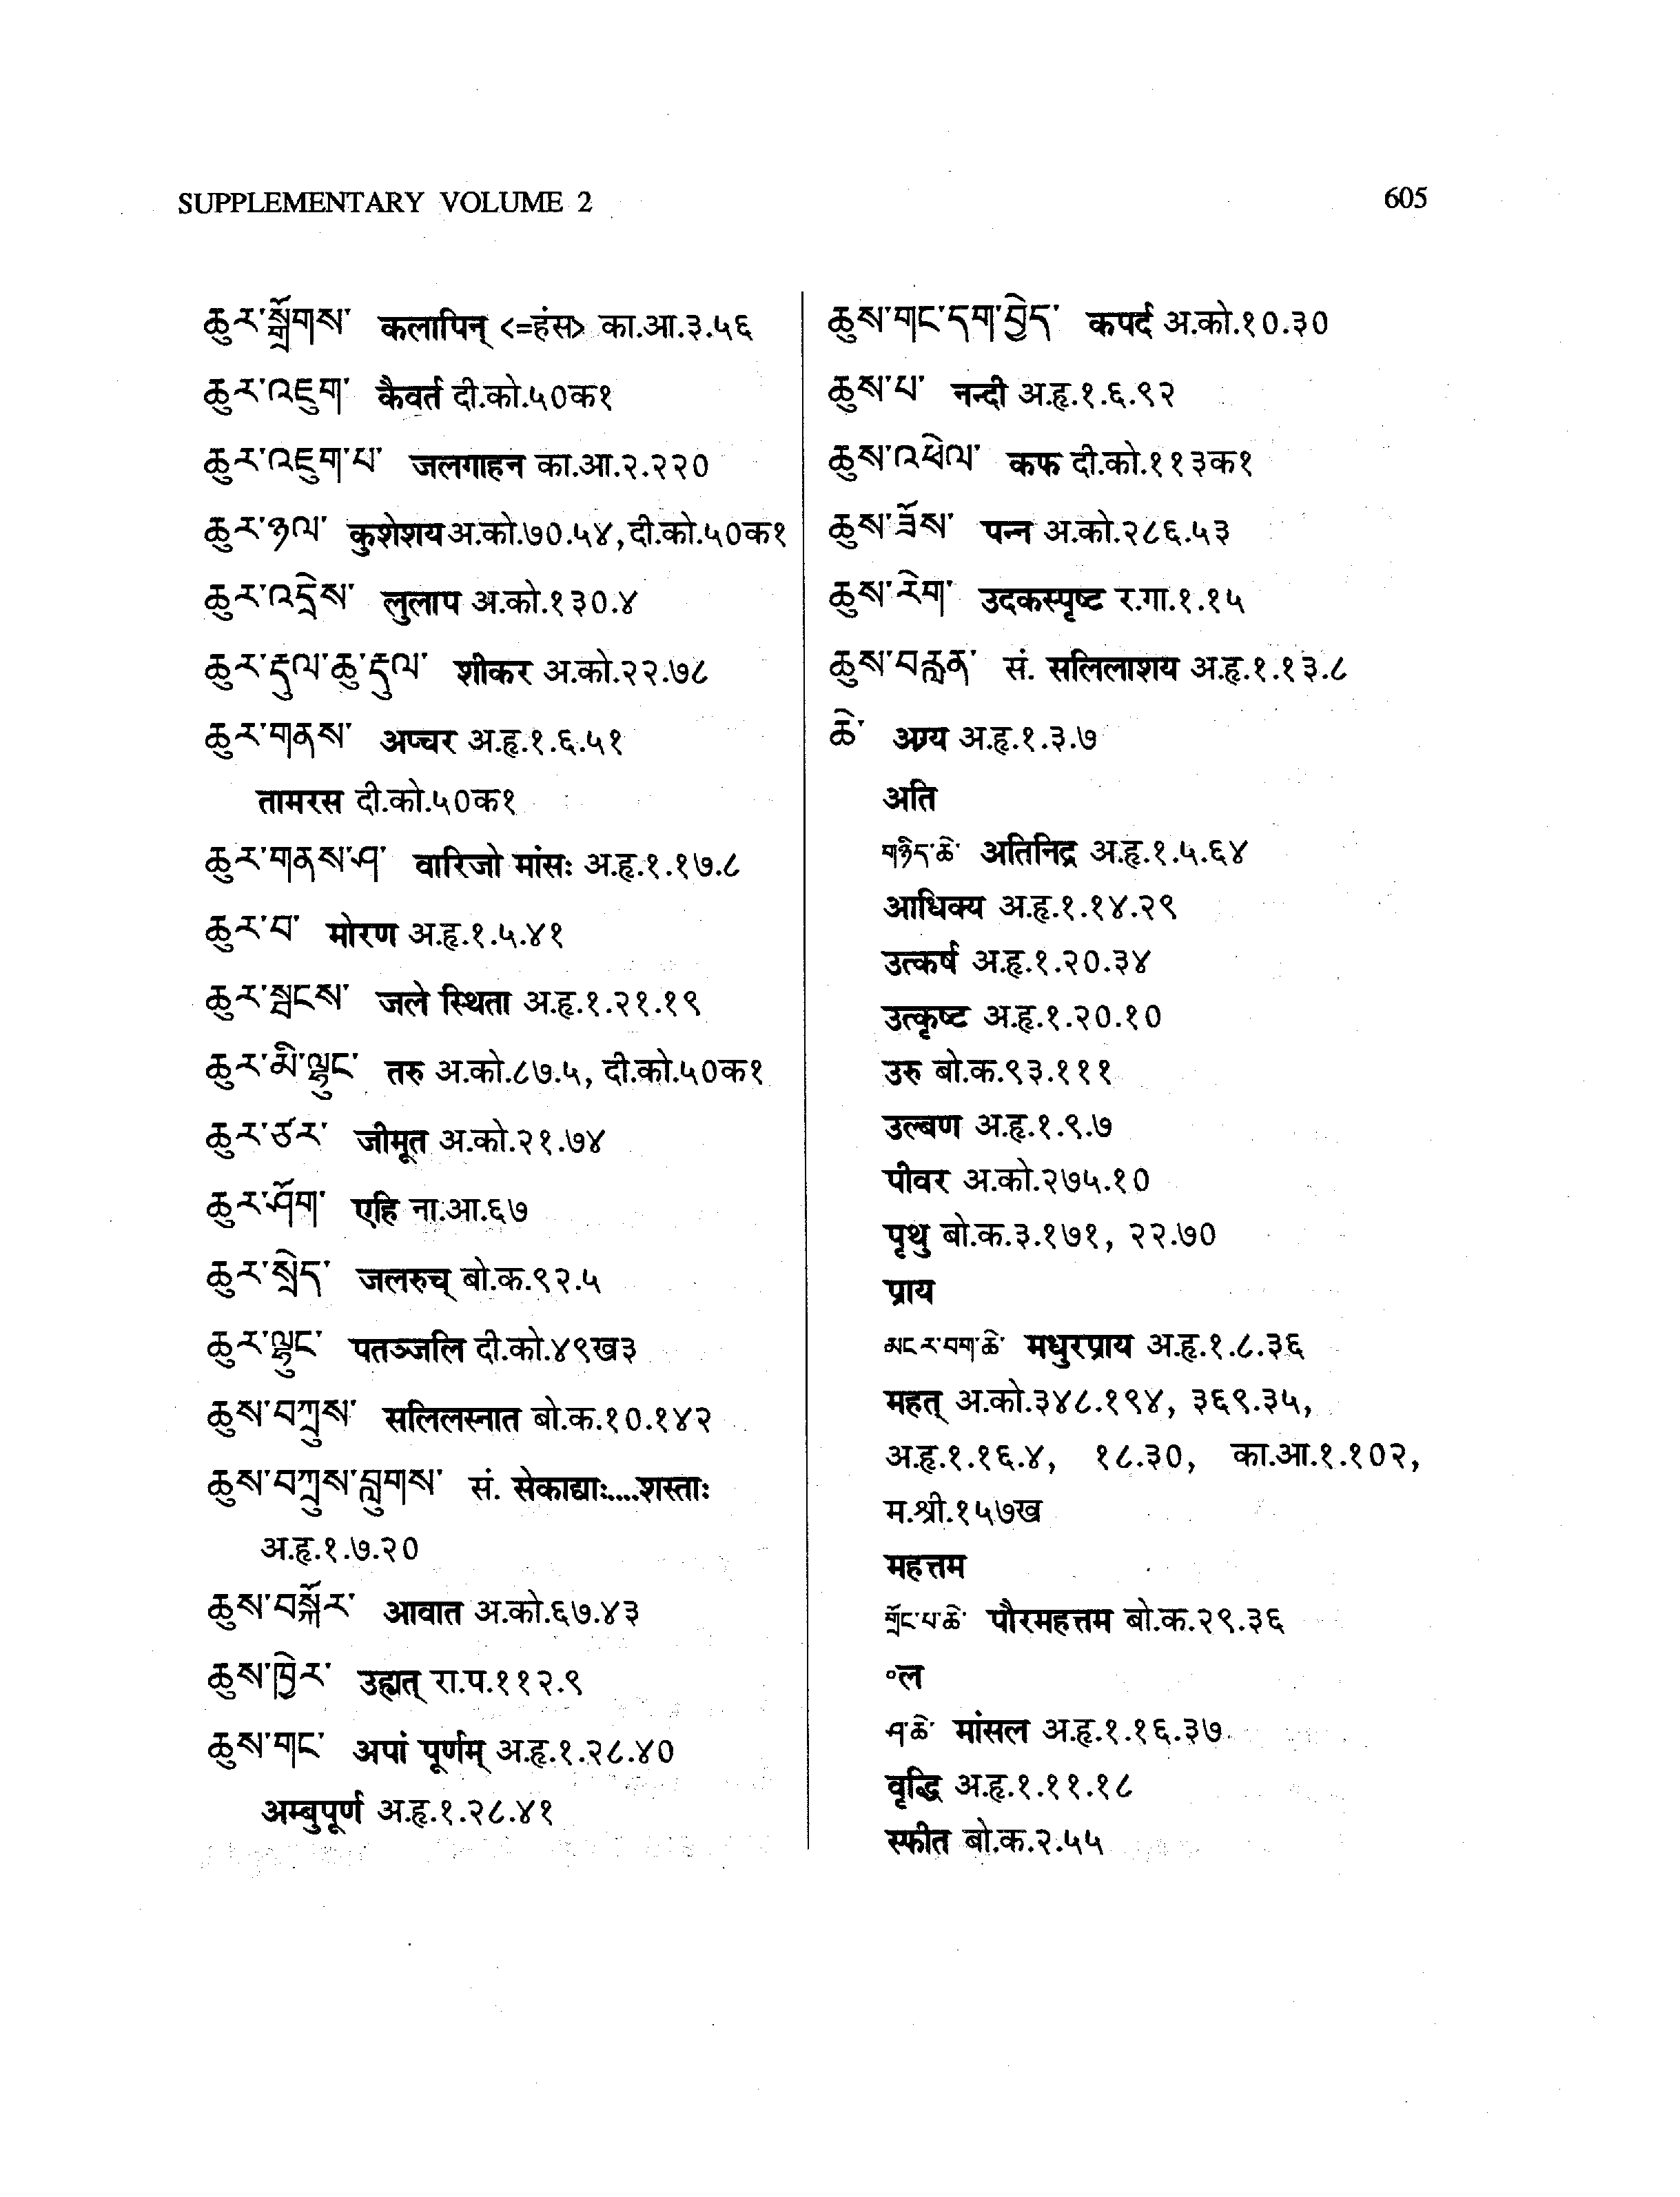 SUPPLEMENTARY VOLUME 2
605
ཆུར་སྒྲོགས་ कलापिन् <=हंस> का.आ.३.५६
ཆུར་འཇུག་ कैवर्त दी.को.५०क१
ཆུར་འཇུག་པ་ जलगाहन का.आ.२.२२०
ཆུར་ཉལ་ कुशेशय अ.को.७०.५४, दी.को.५०क१
ཆུར་འདྲེས་ लुलाप अ.को.१३०.४
ཆུར་རྡུལ་ཆུ་རྡུལ་ शीकर अ.को.२२.७८
ཆུར་གནས་ अप्चर अ.हृ.१.६.५१
तामरस दी.को.५०क१
ཆུར་གནས་ཤ་ वारिजो मांसः अ.हृ.१.१७.८
ཆུར་བ་ मोरण अ.हृ.१.५.४१
ཆུར་སྦངས་ जले स्थिता अ.हृ.१.२१.१९
ཆུར་མི་ལྟུང་ तरु अ.को.८७.५, दी.को.५०क१
ཆུར་ཙར་ जीमूत अ.को.२१.७४
ཆུར་ཤོག་ एहि ना.आ.६७
ཆུར་སྲེད་ जलरुच् बो.क.९२.५
ཆུར་ལྟུང་ पतञ्जलि दी.को.४९ख३
ཆུས་བཀྲུས་ सलिलस्नात बो.क.१०.१४२
ཆུས་བཀྲུས་བླུགས་ सं. सेकाद्याः....शस्ताः
अ.हृ.१.७.२०
ཆུས་བསྐོར་ आवात अ.को.६७.४३
ཆུས་ཁྱེར་ उह्यत् रा.प.११२.९
ཆུས་གང་ अपां पूर्णम् अ.हृ.१.२८.४०
अम्बुपूर्ण अ.हृ.१.२८.४१
ཆུས་གང་དག་བྱེད་ कपर्द अ.को.१०.३०
ཆུས་པ་ नन्दी अ.हृ.१.६.९२
ཆུས་འཕེལ་ कफ दी.को.११३क१
ཆུས་ཟོས་ पन्न अ.को.२८६.५३
ཆུས་རེག་ उदकस्पृष्ट र.गा.१.१५
ཆུས་བརླན་ सं. सलिलाशय अ.हृ.१.१३.८
ཆེ་ अग्र्य अ.हृ.१.३.७
अति
གཉིད་ཆེ་ अतिनिद्र अ.हृ.१.५.६४
आधिक्य अ.हृ.१.१४.२९
उत्कर्ष अ.हृ.१.२०.३४
उत्कृष्ट अ.हृ.१.२०.१०
उरु बो.क.९३.१११
उल्बण अ.हृ.१.९.७
पीवर अ.को.२७५.१०
पृथु बो.क.३.१७१, २२.७०
प्राय
མངར་བག་ཆེ་ मधुरप्राय अ.हृ.१.८.३६
महत् अ.को.३४८.१९४, ३६९.३५,
अ.हृ.१.१६.४, १८.३०, का.आ.१.१०२,
म.श्री.१५७ख
महत्तम
གྲོང་པ་ཆེ་ पौरमहत्तम बो.क.२९.३६
॰ल
ཤ་ཆེ་ मांसल अ.हृ.१.१६.३७
वृद्धि अ.हृ.१.११.१८
स्फीत बो.क.२.५५